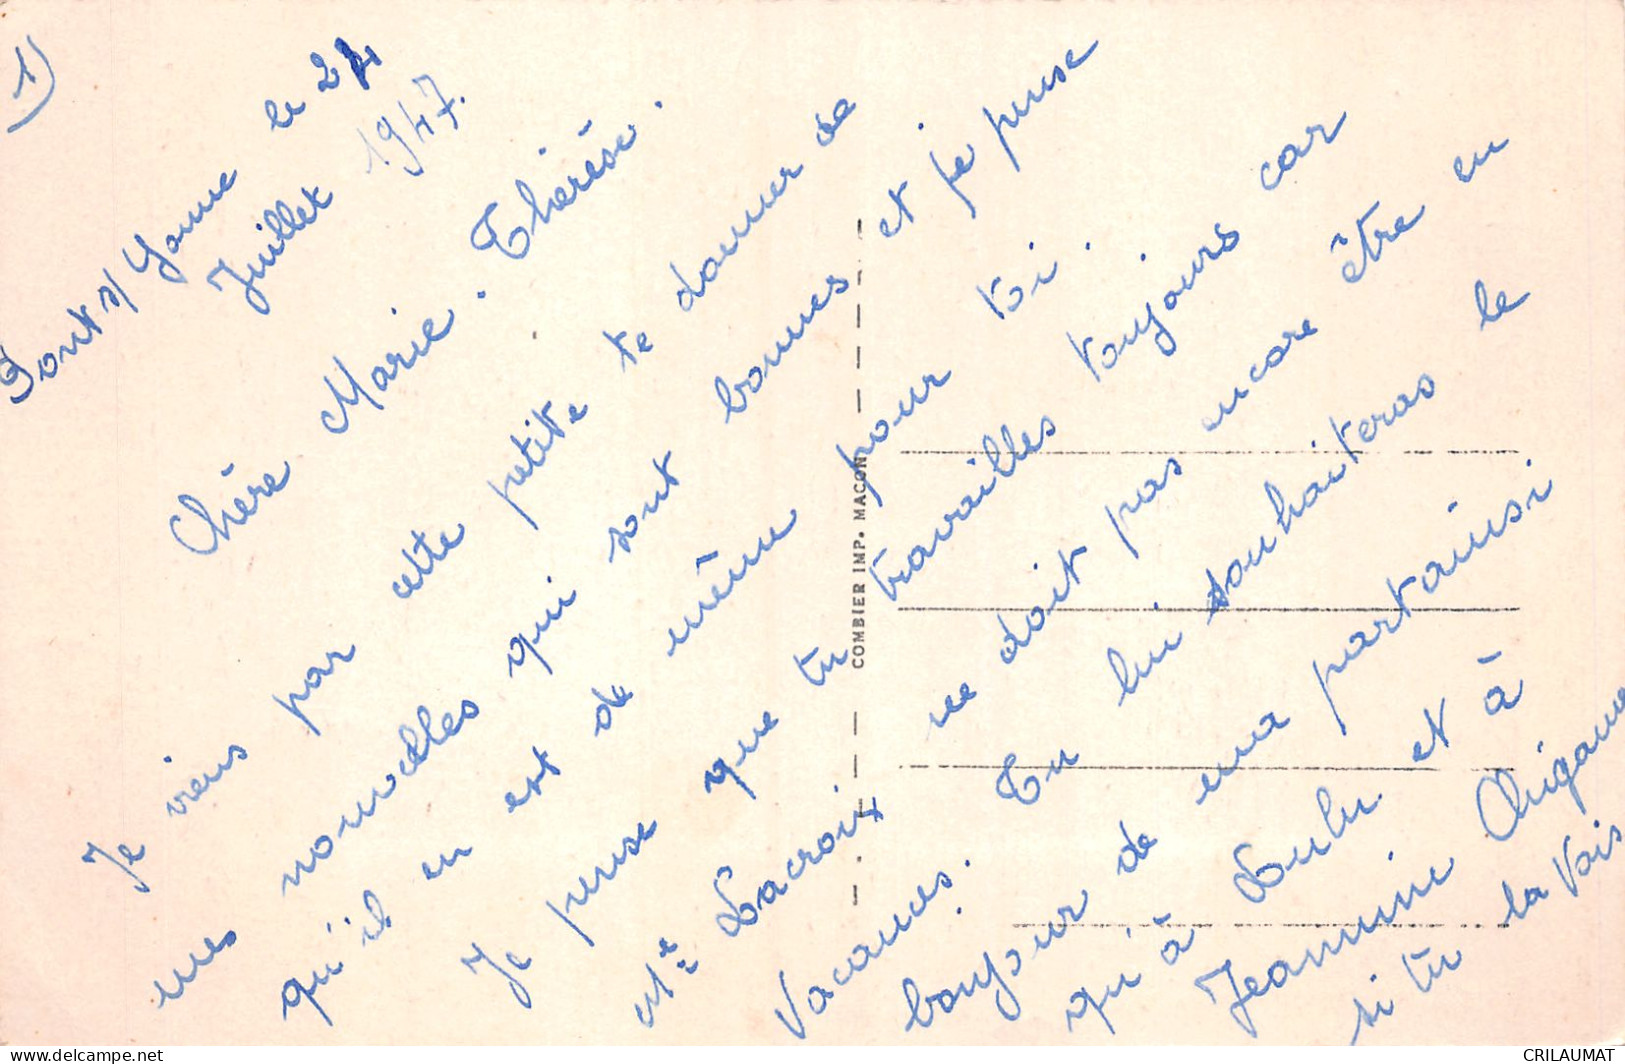 1)
Pont s/ Yonne le 24
Juillet 1947.
Chère Marie-Thérèse.
Je viens par cette petite te donner de
mes nouvelles qui sont bonnes et je pense
qu'il en est de même pour toi.
Je pense que tu travailles toujours car
Mle Lacroix ne doit pas encore être en
vacances. Tu lui souhaiteras le
bonjour de ma part ainsi
qu'à Lulu et à
Jeannine
si tu la vois
COMBIER IMP. MACON
delcampe.net
CRILAUMAT